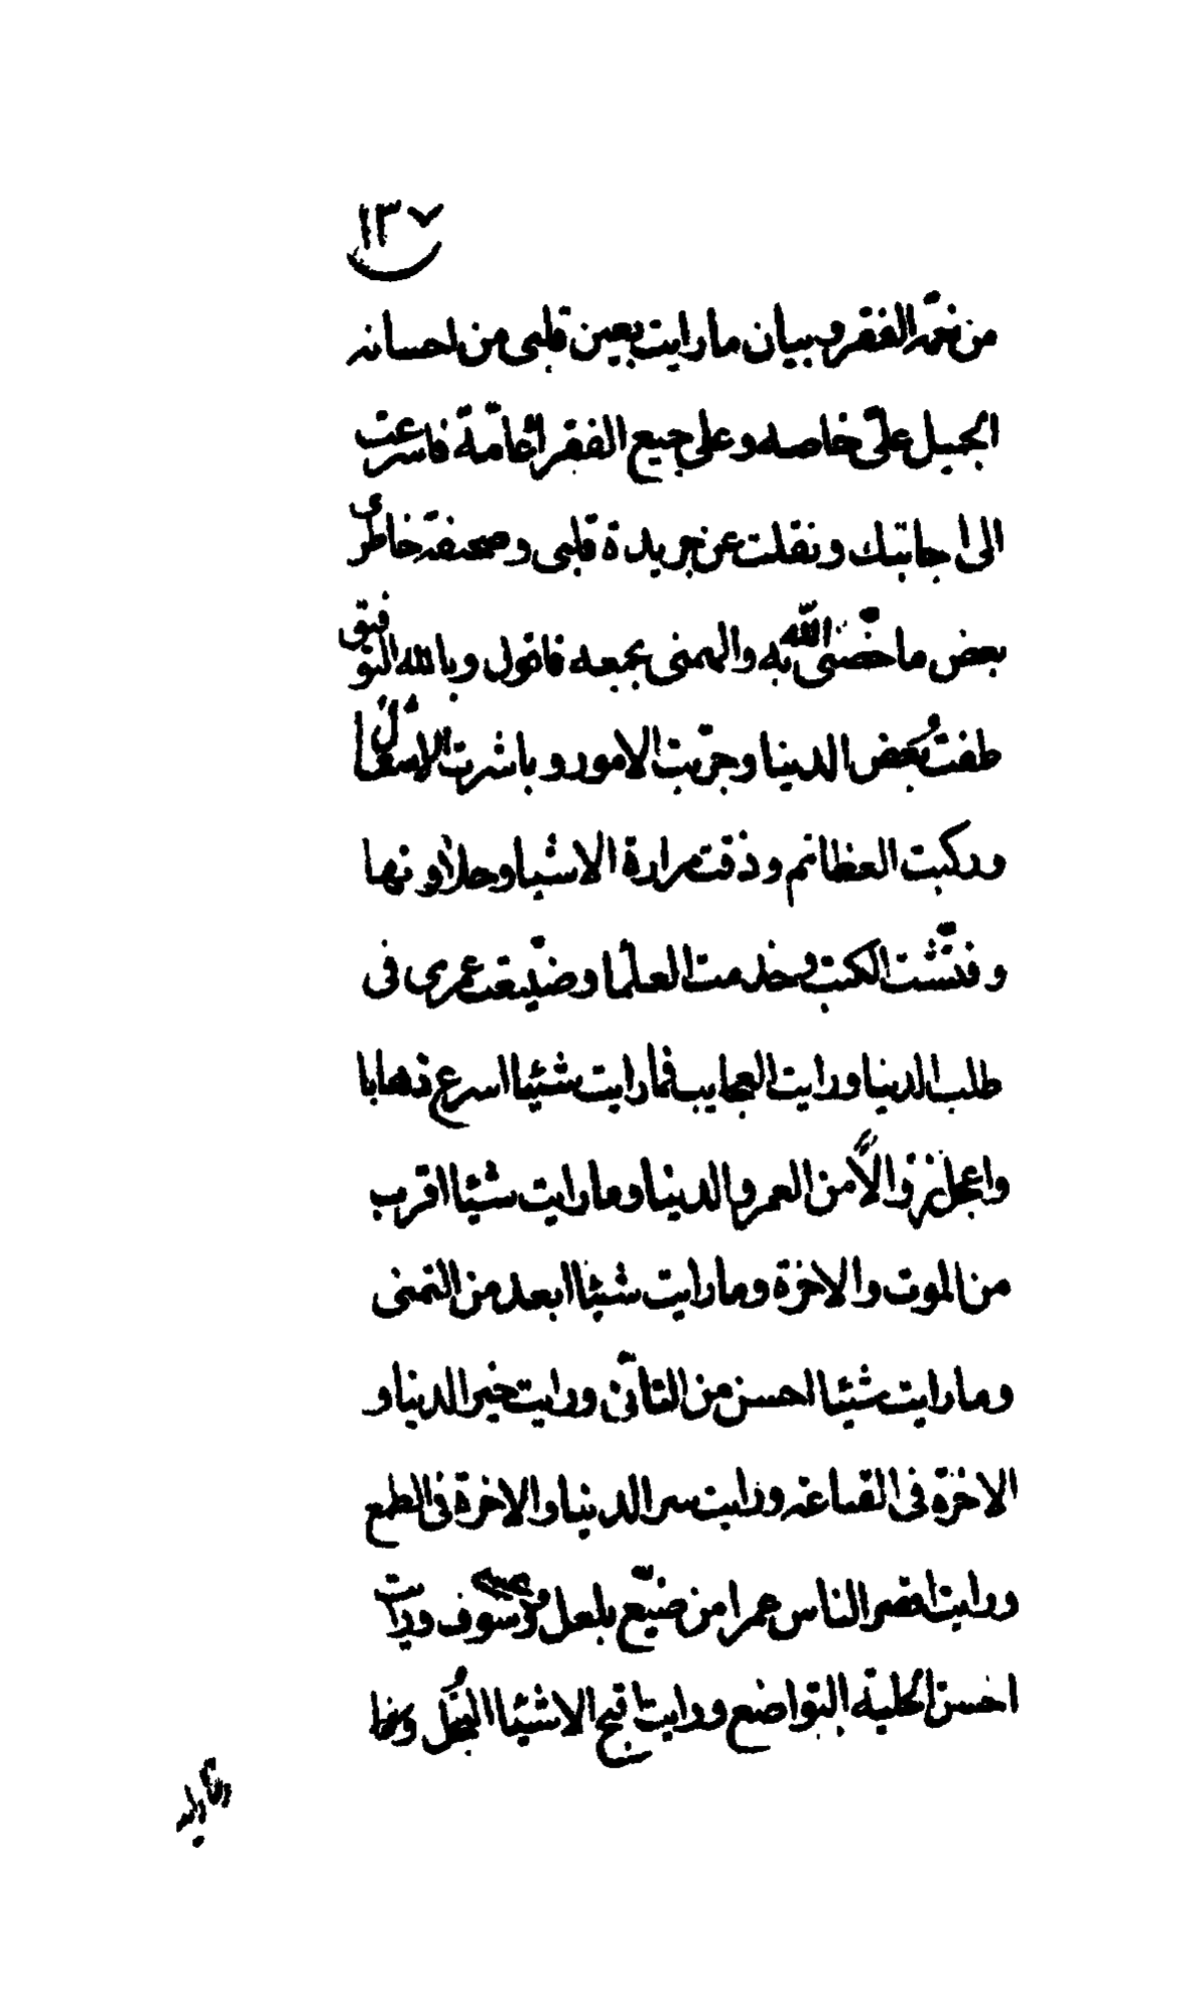 ١٣٧
من نعمة الفقر وبيان ما رايت بعين قلبى من احسانه
الجميل علىّ خاصه وعلى جميع الفقرا عامّة فاسرعت
الى اجابتك ونقلت عن جريدة قلبى وصحيفة خاطرى
بعض ما خصّنى اللّه به والهمنى بجمعه فاقول وبالله التوفيق
طفتُ بَعض الدنيا وجرّبت الامور وباشرت الاسفا
وركبت العظائم وذقت مرارة الاشيا وحلاوتها
وفتّشت الكتب وخدمت العلما وضيّعت عمرى فى
طلب الدنيا ورايت العجايب فما رايت شئيا اسرع ذهابا
واعجل زوالاً من العمر والدنيا وما رايت شئيا اقرب
من الموت والاخرة وما رايت شئيا ابعد من التمنى
وما رايت شئيا احسن من التأنّى ورايت خير الدنيا و
الاخرة فى القناعه ورايت سر الدنيا والاخرة فى الطمع
ورايت اقصر الناس عمرا من ضيّع بلعل وسوف ورايت
احسن الحلية التواضع ورايت اقبح الاشئيا البُخل وما
وما رايت